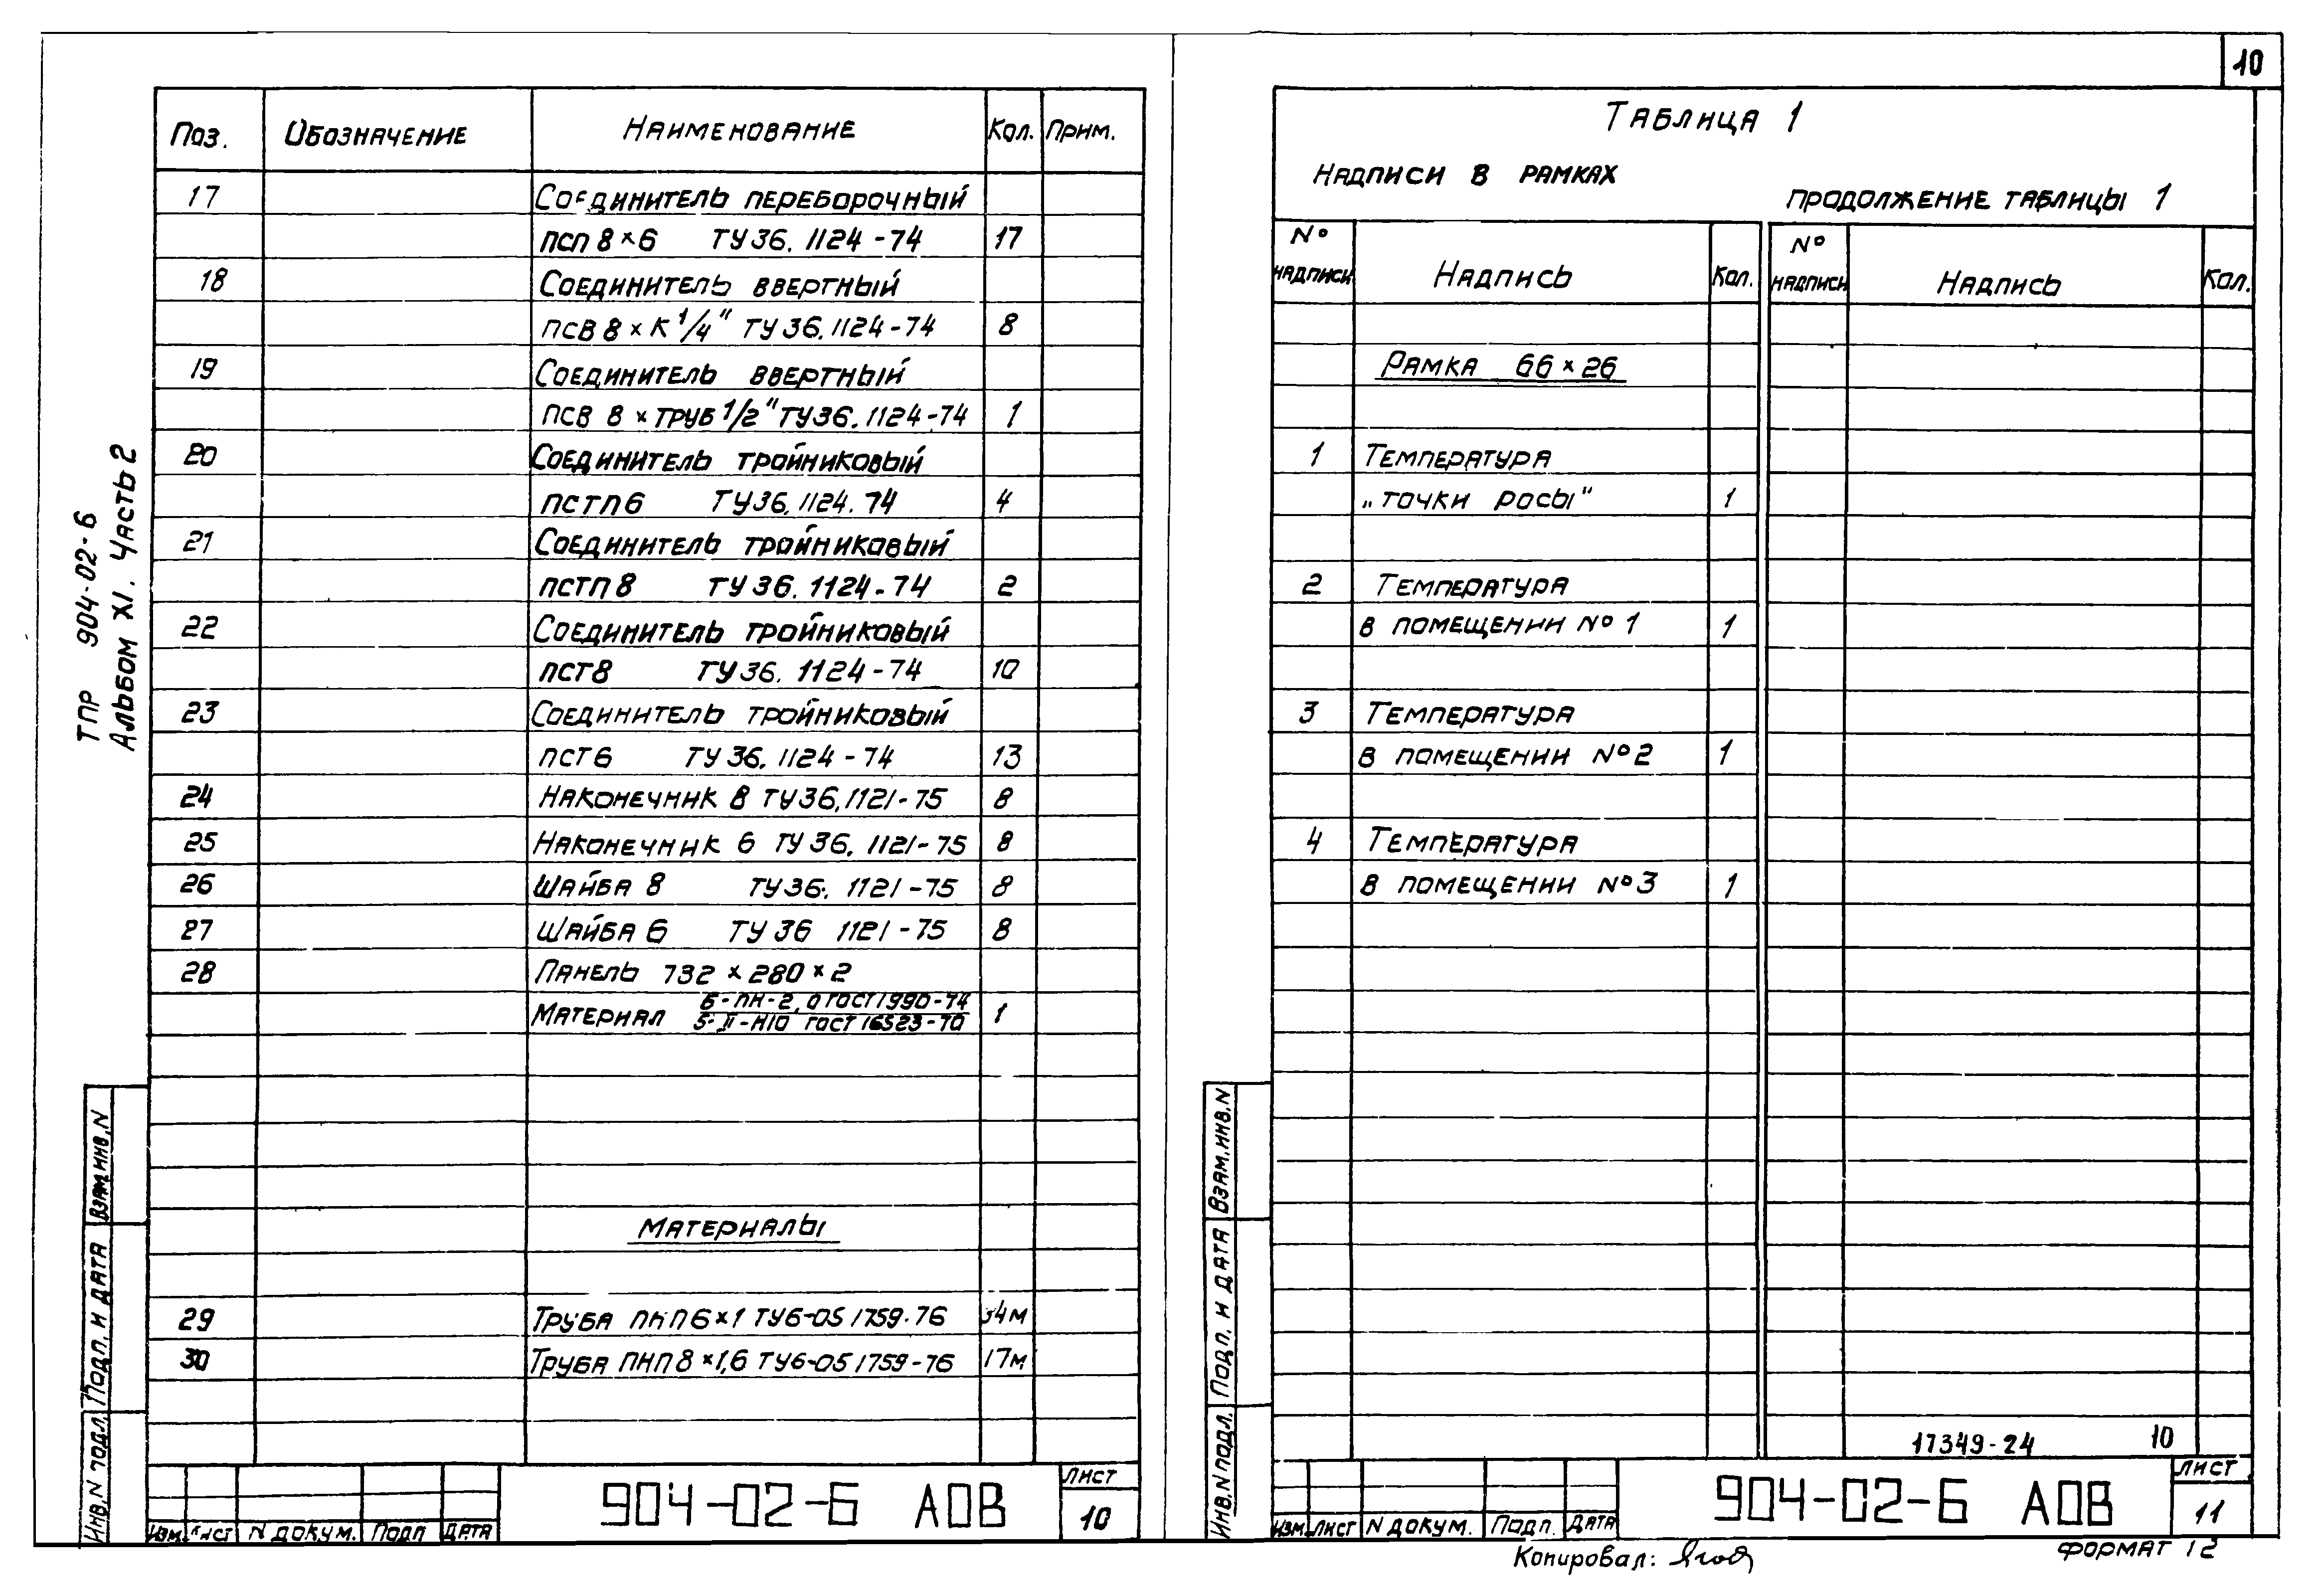 10
ТПР 904-02-6
Альбом XI. Часть 2
Поз. Обозначение Наименование Кол. Прим.
17 Соединитель переборочный
псп 8×6 ТУ36.1124-74 17
18 Соединитель ввертный
псв 8×К 1/4" ТУ36.1124-74 8
19 Соединитель ввертный
псв 8×труб 1/2" ТУ36.1124-74 1
20 Соединитель тройниковый
пстп6 ТУ36.1124.74 4
21 Соединитель тройниковый
пстп 8 ТУ36.1124-74 2
22 Соединитель тройниковый
пст8 ТУ36.1124-74 10
23 Соединитель тройниковый
пст6 ТУ36.1124-74 13
24 Наконечник 8 ТУ36.1121-75 8
25 Наконечник 6 ТУ36.1121-75 8
26 Шайба 8 ТУ36. 1121-75 8
27 Шайба 6 ТУ36 1121-75 8
28 Панель 732×280×2
Материал Б-ПН-2,0 ГОСТ 1990-74 1
5-II-Н10 ГОСТ 16523-70
Материалы
29 Труба ПНП6×1 ТУ6-05 1759.76 34м
30 Труба ПНП8×1,6 ТУ6-05 1759-76 17м
Инв.N подл. Подп. и дата Взам.инв.N
Изм. Лист N докум. Подп Дата
904-02-6 АОВ
Лист
10
Таблица 1
Надписи в рамках
продолжение таблицы 1
N° надписи Надпись Кол. N° надписи Надпись Кол.
Рамка 66×26
1 Температура
„точки росы" 1
2 Температура
в помещении N°1 1
3 Температура
в помещении N°2 1
4 Температура
в помещении N°3 1
17349-24 10
Инв.N подл. Подп. и дата Взам.инв.N
Изм. Лист N докум. Подп. Дата
904-02-6 АОВ
Лист
11
Копировал:
Формат 12